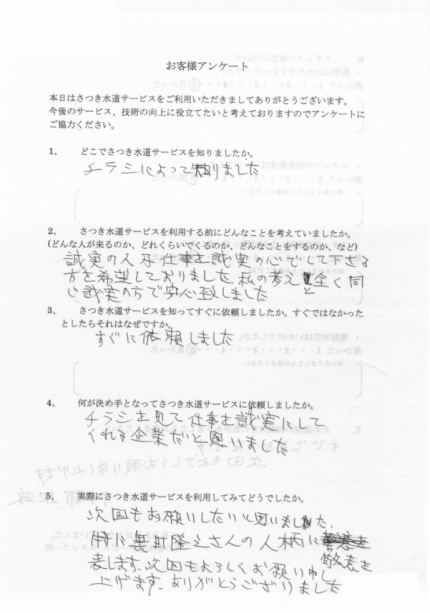 お客様アンケート
本日はさつき水道サービスをご利用いただきましてありがとうございます。
今後のサービス、技術の向上に役立てたいと考えておりますのでアンケートに
ご協力ください。
1、 どこでさつき水道サービスを知りましたか。
チラシによって知りました
2、 さつき水道サービスを利用する前にどんなことを考えていましたか。
（どんな人が来るのか、どれくらいでくるのか、どんなことをするのか、など）
誠実の人が仕事を誠実の心でして下さる
方を希望しておりました、私の考えと全く同
じ誠実の方で安心致しました
3、 さつき水道サービスを知ってすぐに依頼しましたか。すぐではなかった
としたらそれはなぜですか。
すぐに依頼しました
4、 何が決め手となってさつき水道サービスに依頼しましたか。
チラシを見て仕事を誠実にして
くれる企業だと思いました
5、 実際にさつき水道サービスを利用してみてどうでしたか。
次回もお願いしたいと思いました、
特に 隆之さんの人柄に
敬意を
表します、次回もよろしくお願い申し
上げます、ありがとうございました